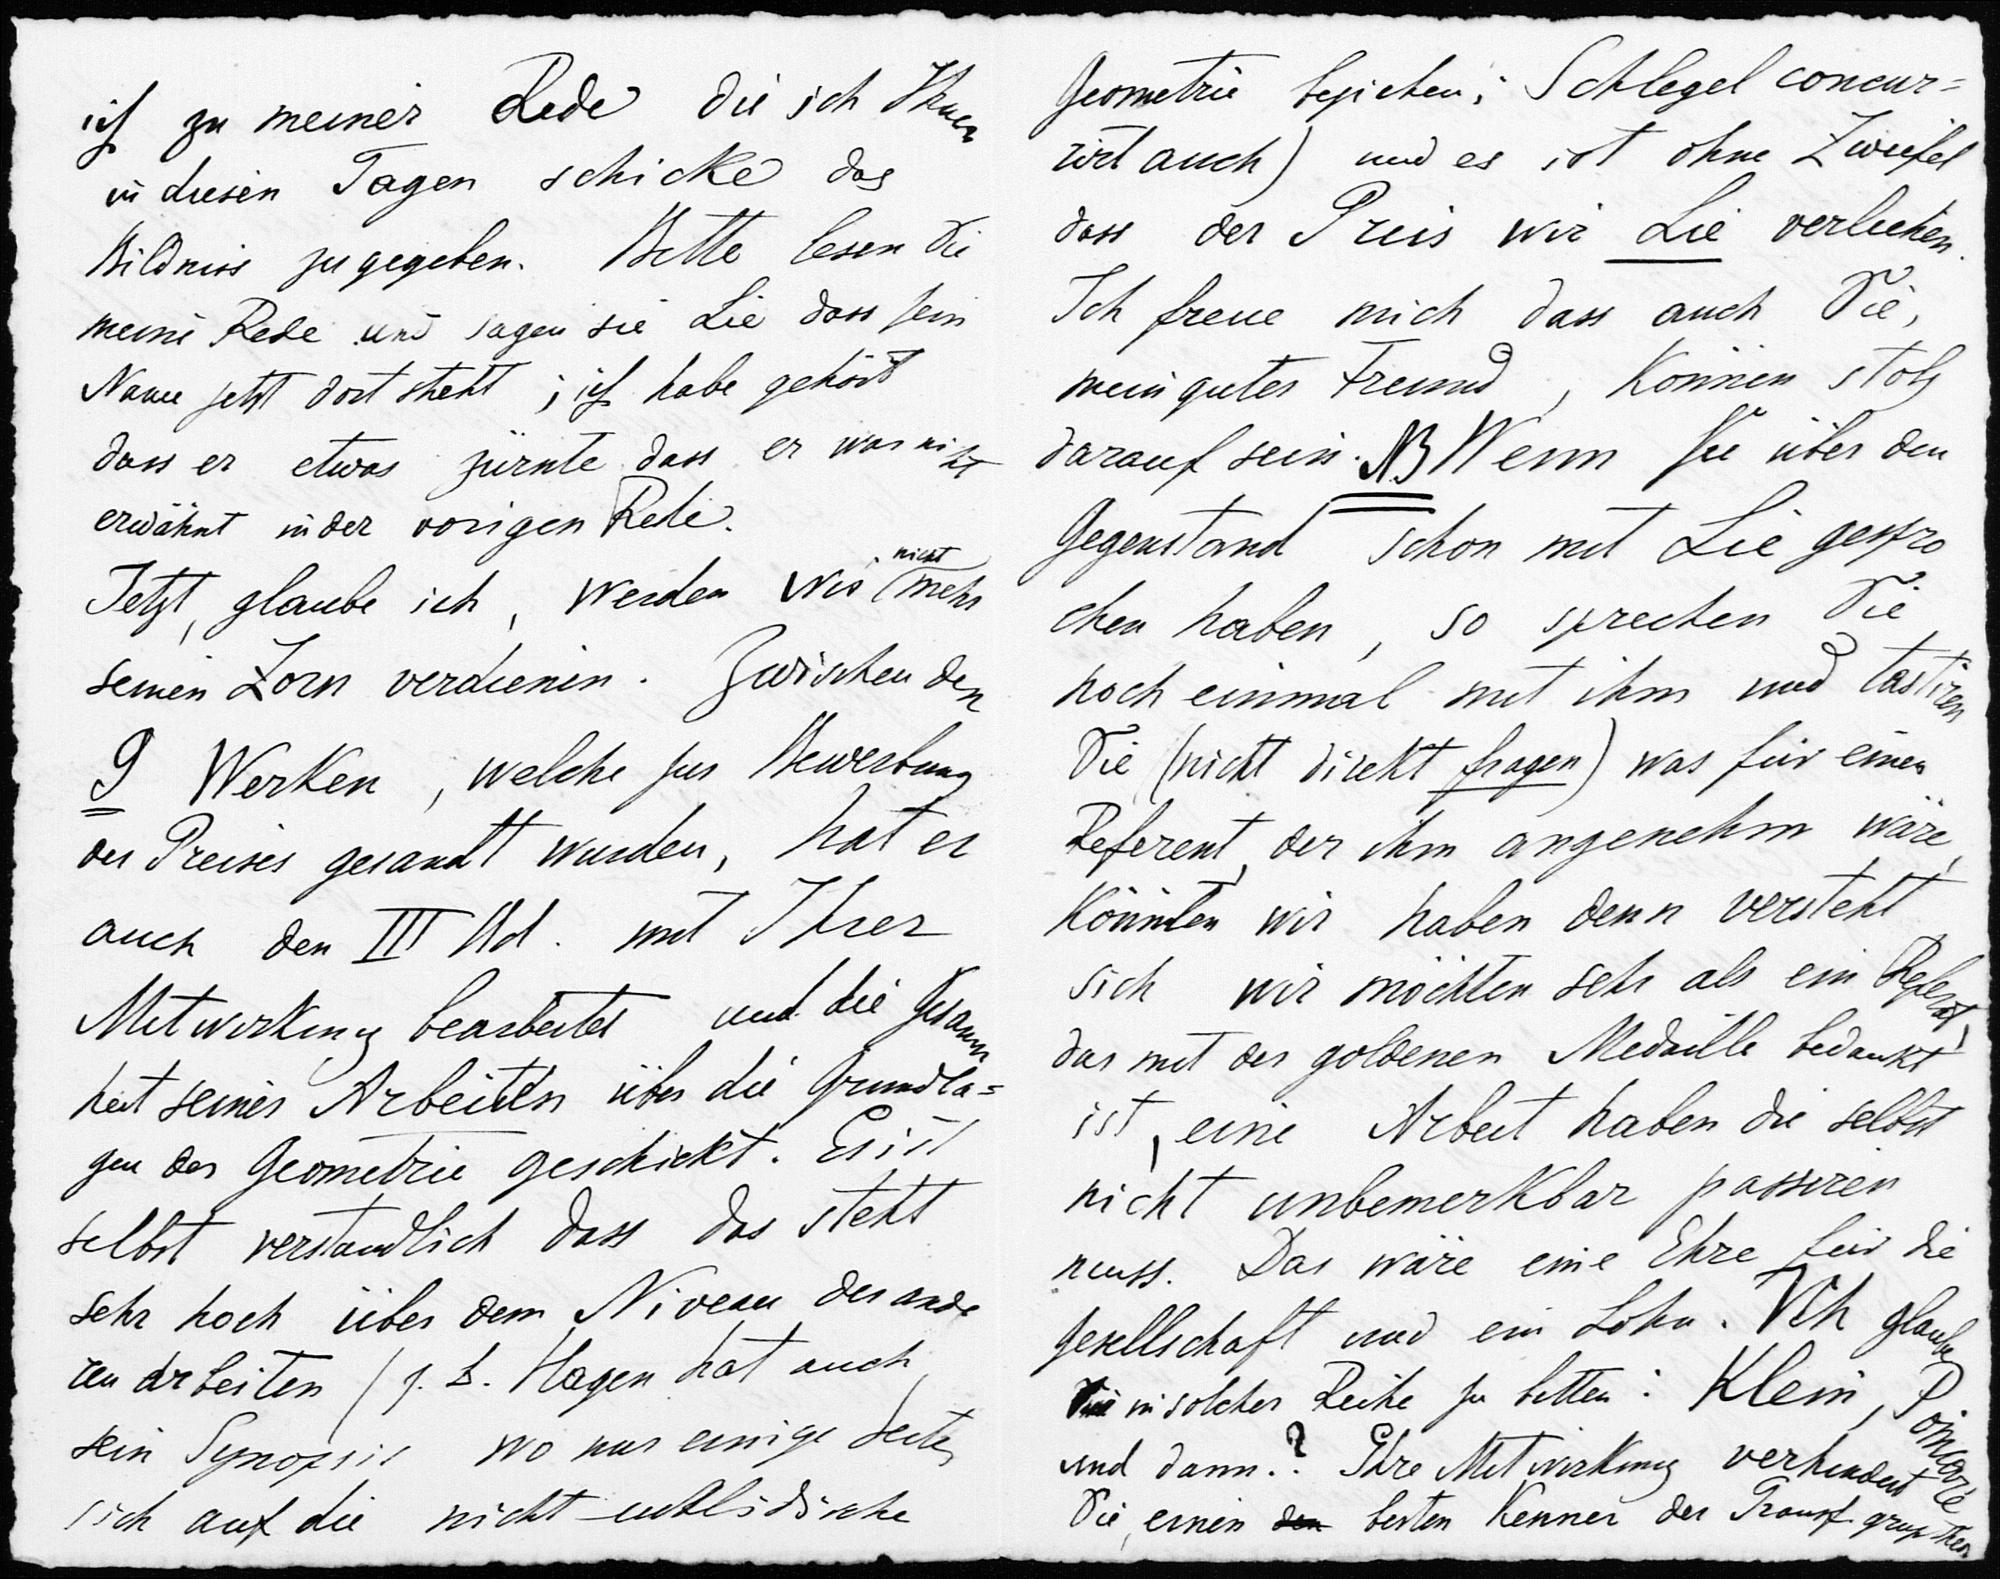 ich zu meiner Rede die ich Ihnen
in diesen Tagen schicke das
Bildniss zugegeben. Bitte lesen Sie
meine Rede und sagen sie Lie dass sein
Name jetzt dort steht ; ich habe gehört
dass er etwas zürnte dass er war nicht
erwähnt in der vorigen Rede.
Jetzt, glaube ich, werden wir nicht mehr
seinen Zorn verdienen. Zwischen den
9 Werken, welche zur Bewerbung
des Preises gesandt wurden, hat er
auch den III Bd. mit Ihrer
Mitwirkung bearbeitet und die Gesamm
heit seiner Arbeiten über die Grundla=
gen der Geometrie geschickt. Es ist
selbst verstandlich dass das steht
sehr hoch über dem Niveau der ande
ren Arbeiten (z. B. Hagen hat auch
sein Synopsis wo nur einige Seiten
sich auf die nicht-euklidische
Geometrie beziehen; Schlegel concur=
rirt auch) und es ist ohne Zweifel
dass der Preis wir Lie verleihen.
Ich freue mich dass auch Sie,
mein guter Freund, können stolz
darauf sein. NB Wenn Sie über den
Gegenstand schon mit Lie gespro
chen haben, so sprechen Sie
noch einmal mit ihm und tastiren
Sie (nicht direkt fragen) was für einen
Referent, der ihm angenehm wäre,
könnten wir haben denn versteht
sich wir möchten sehr als ein Referat,
das mit der goldenen Medaille bedankt
ist, eine Arbeit haben die selbst
nicht unbemerkbar passiren
muss. Das wäre eine Ehre für die
Gesellschaft und ein Lohn. Ich glaube
in solcher Reihe zu bitten: Klein, Poincaré
und dann.? Ihre Mitwirkung verhindert
Sie, einen den besten Kenner der Transf. grup. theor.